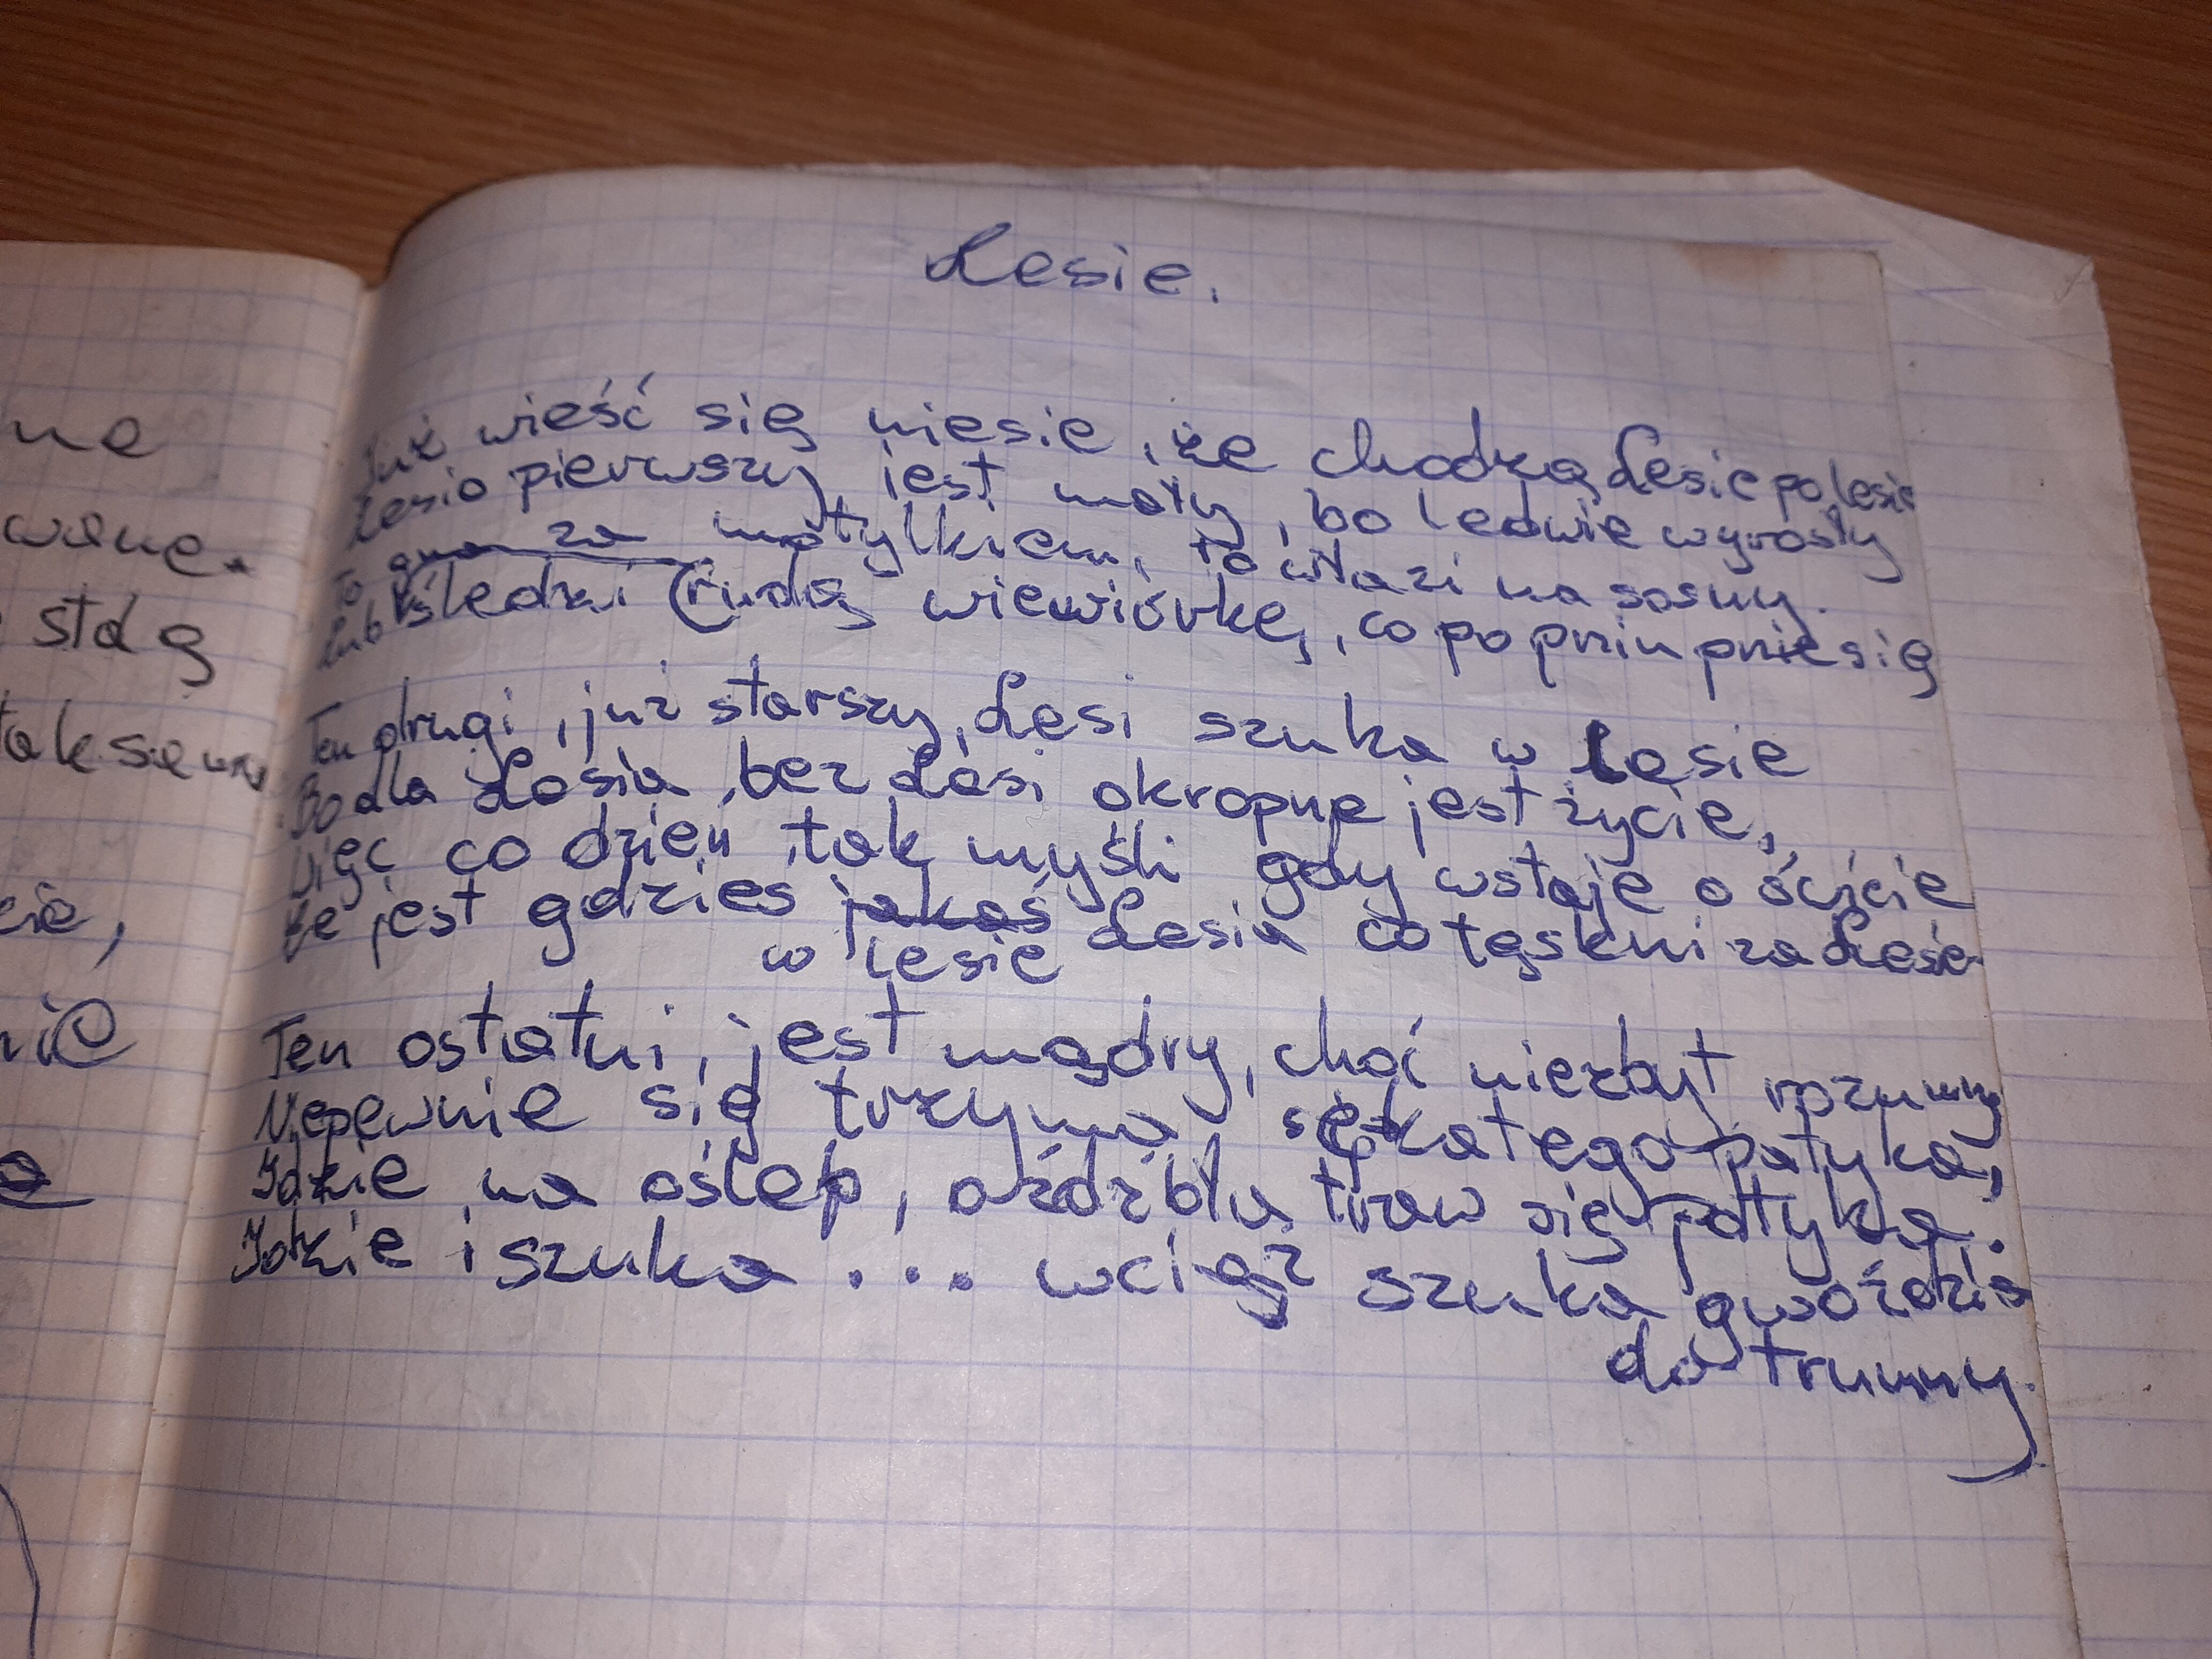 ne
wane.
stdą
tak się
nie
Lesie.
Już wieść się niesie, że chodzą Lesie po lesie
Lesio pierwszy, jest mały, bo ledwie wyrosły
To gna za motylkiem, to włazi na sosny.
Lub śledzi rudą wiewiórkę, co po pniu pnie się
Ten drugi, już starszy, Lesi szuka w lesie
Bo dla Lesia, bez Lesi okropne jest życie,
Więc co dzień, tak myśli gdy wstaje o świcie
Że jest gdzieś jakaś Lesia co tęskni za Lesie
w lesie
Ten ostatni, jest mądry, choć niezbyt rozumny
Niepewnie się trzyma, sękatego patyka,
Idzie na oślep, o źdźbła traw się potyka.
Idzie i szuka... wciąż szuka gwoździa
do trumny.